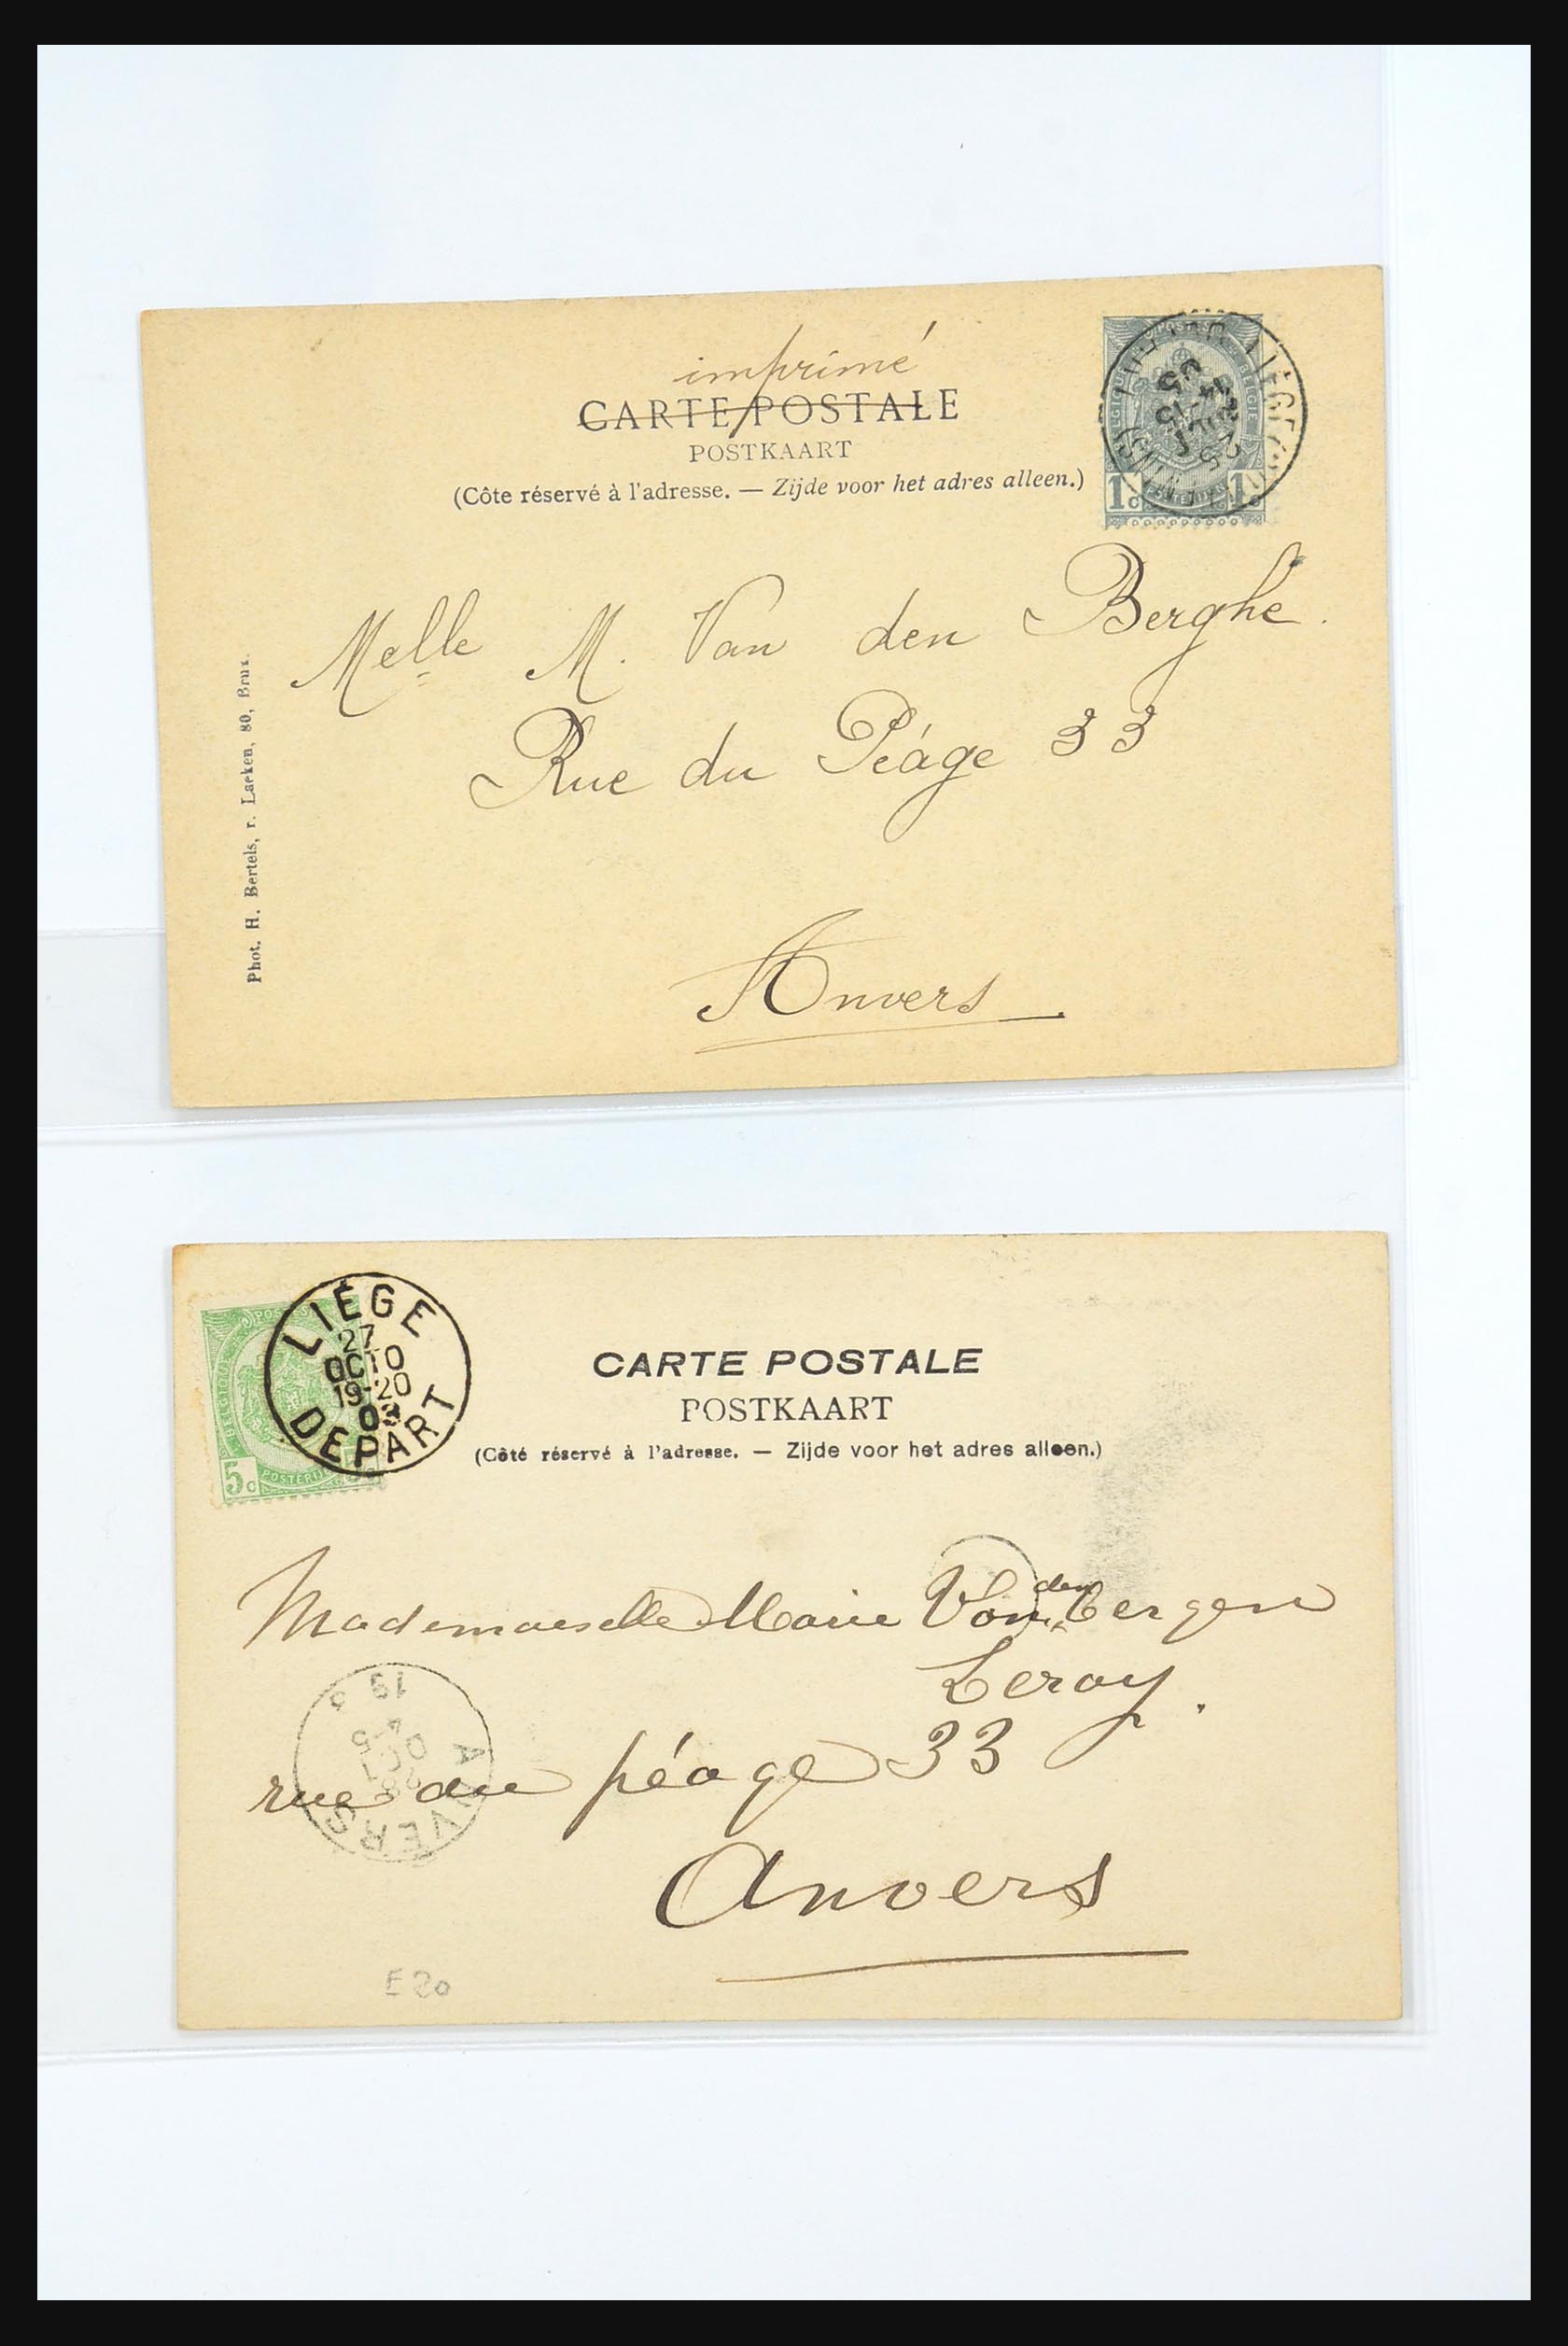 imprimé
CARTE POSTALE
POSTKAART
(Côte réservé à l'adresse. — Zijde voor het adres alleen.)
1c 1c
25
JUIL
14-15
05
Melle M. Van den Berghe.
Rue du Péage 33
Anvers
Phot. H. Bertels, r. Laeken, 80, Brux.
LIÉGE
27
OCTO
19-20
03
DEPART
BELGIQUE
5c POSTERIJ
CARTE POSTALE
POSTKAART
(Côté réservé à l'adresse. — Zijde voor het adres alleen.)
Mademoiselle Marie Van den bergen
Leroy.
rue du péage 33
Anvers
ANVERS
28
OCT
4-5
19 3
E20